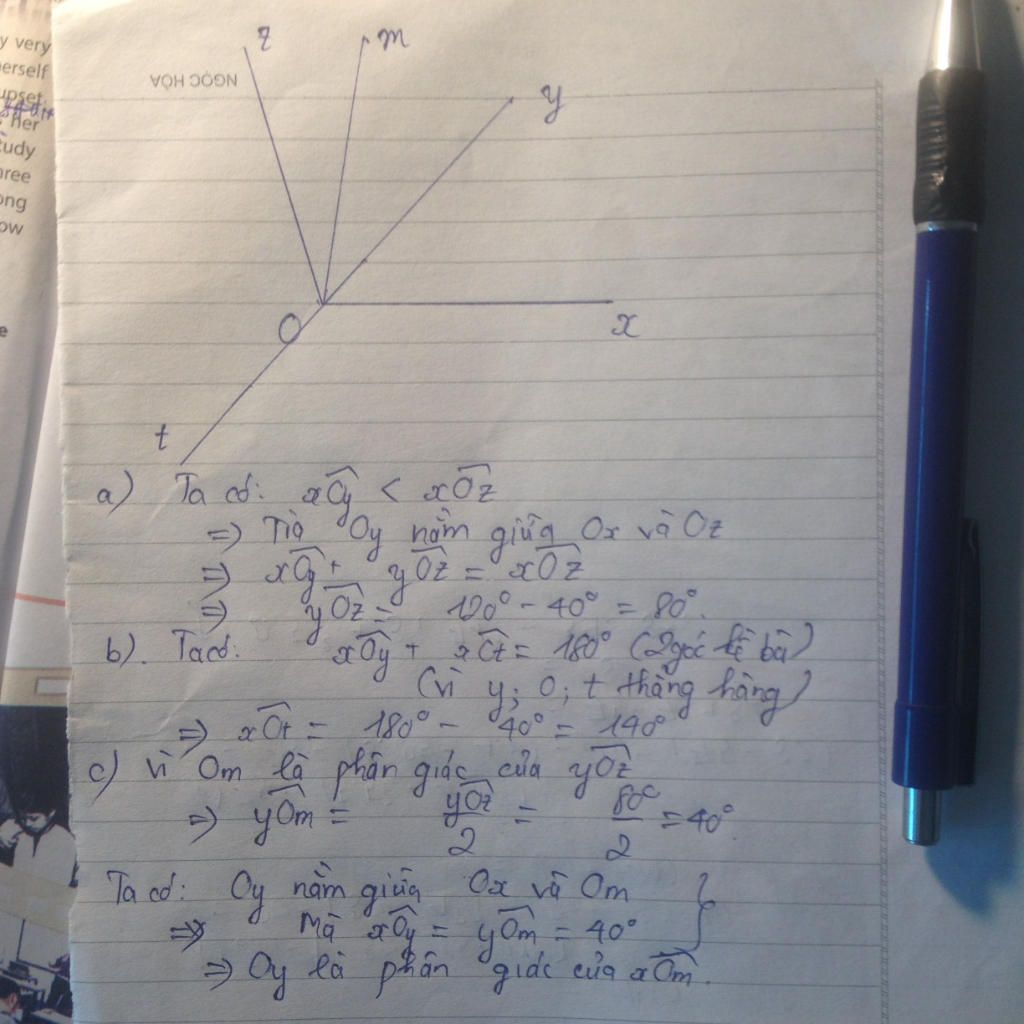 y very
erself
upset.
her
tudy
hree
ong
ow
e
NGỌC HÒA
z
m
y
O
x
t
a) Ta có: xÔy < xÔz
=> Tia Oy nằm giữa Ox và Oz
=> xÔy + yÔz = xÔz
=> yÔz = 120° - 40° = 80°.
b). Ta có: xÔy + xÔt = 180° (2 góc kề bù)
(vì y; O; t thẳng hàng)
=> xÔt = 180° - 40° = 140°
c) Vì Om là phân giác của yÔz
=> yÔm = yÔz/2 = 80°/2 = 40°
Ta có: Oy nằm giữa Ox và Om }
=> Mà xÔy = yÔm = 40°
=> Oy là phân giác của xÔm.